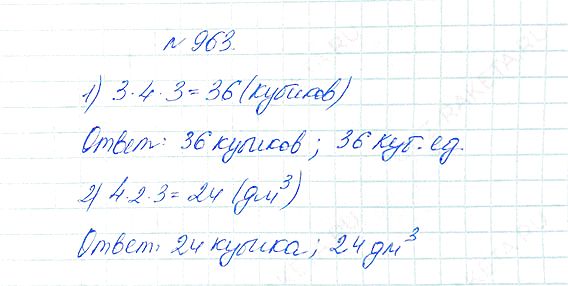 № 963.
1) 3·4·3=36 (кубиков)
Ответ: 36 кубиков; 36 куб. ед.
2) 4·2·3=24 (дм³)
Ответ: 24 кубика; 24 дм³